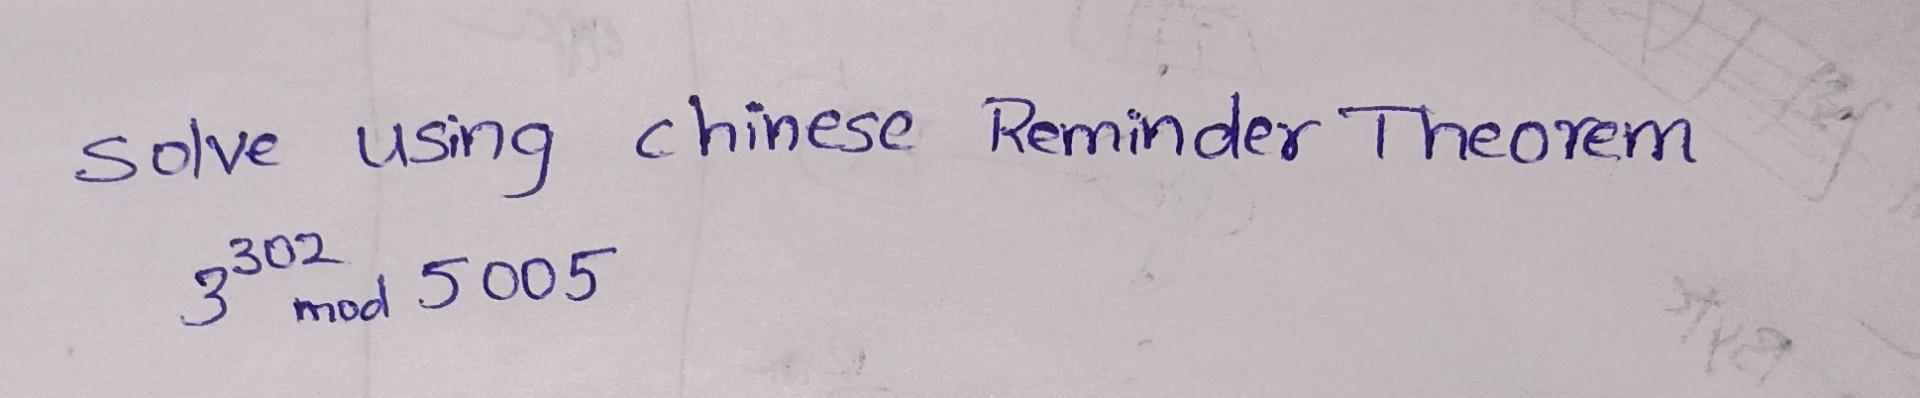 solve using chinese Reminder Theorem
3^302 mod 5005